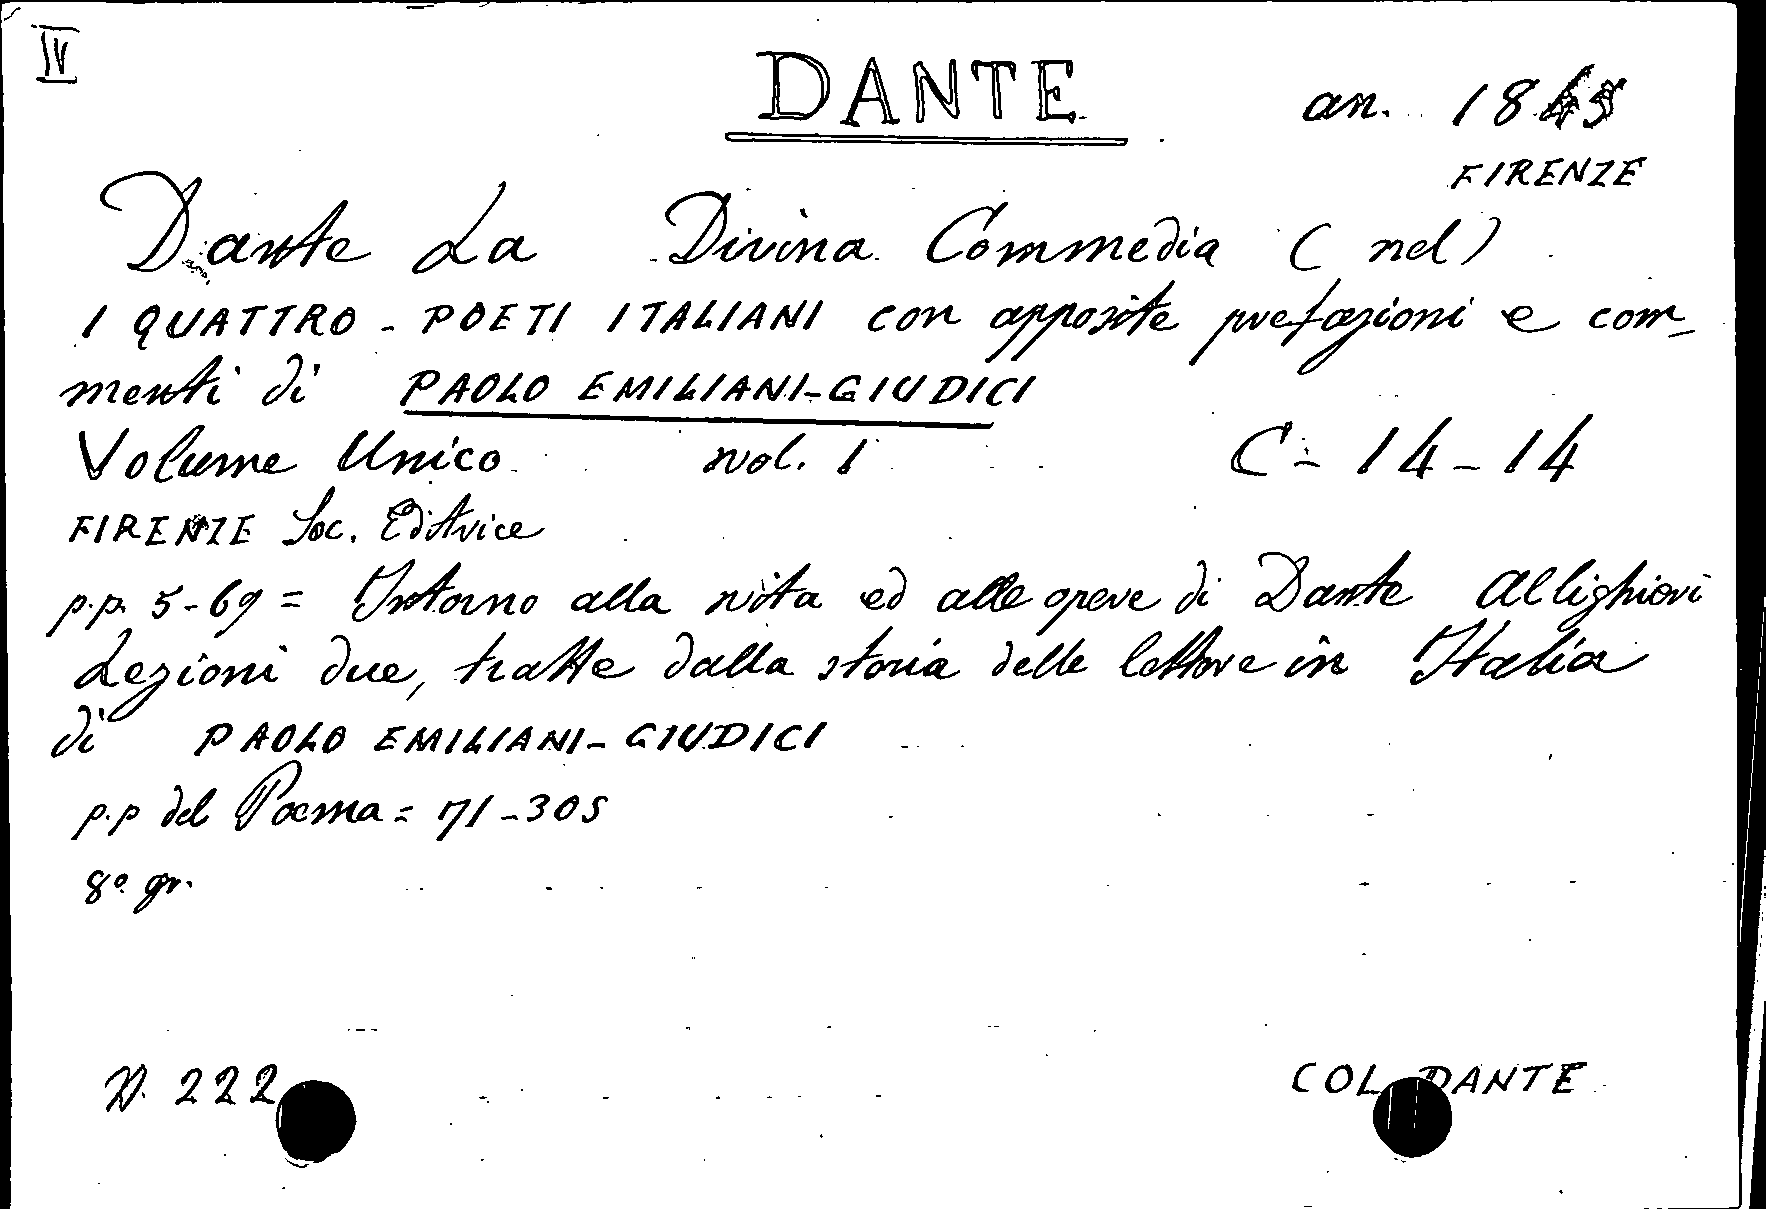 IV
DANTE
an. 1845
FIRENZE
Dante La Divina Commedia (nel)
I QUATTRO - POETI ITALIANI con apposite prefazioni e com-
menti di PAOLO EMILIANI-GIUDICI
Volume Unico vol. 1 C-14-14
FIRENZE Soc. Editrice
p.p. 5-69 = Intorno alla vita ed alle opere di Dante Allighieri
Lezioni due, tratte dalla storia delle lettere in Italia
di PAOLO EMILIANI-GIUDICI
p.p del Poema = 71-305
8º gr.
N. 222
COL DANTE